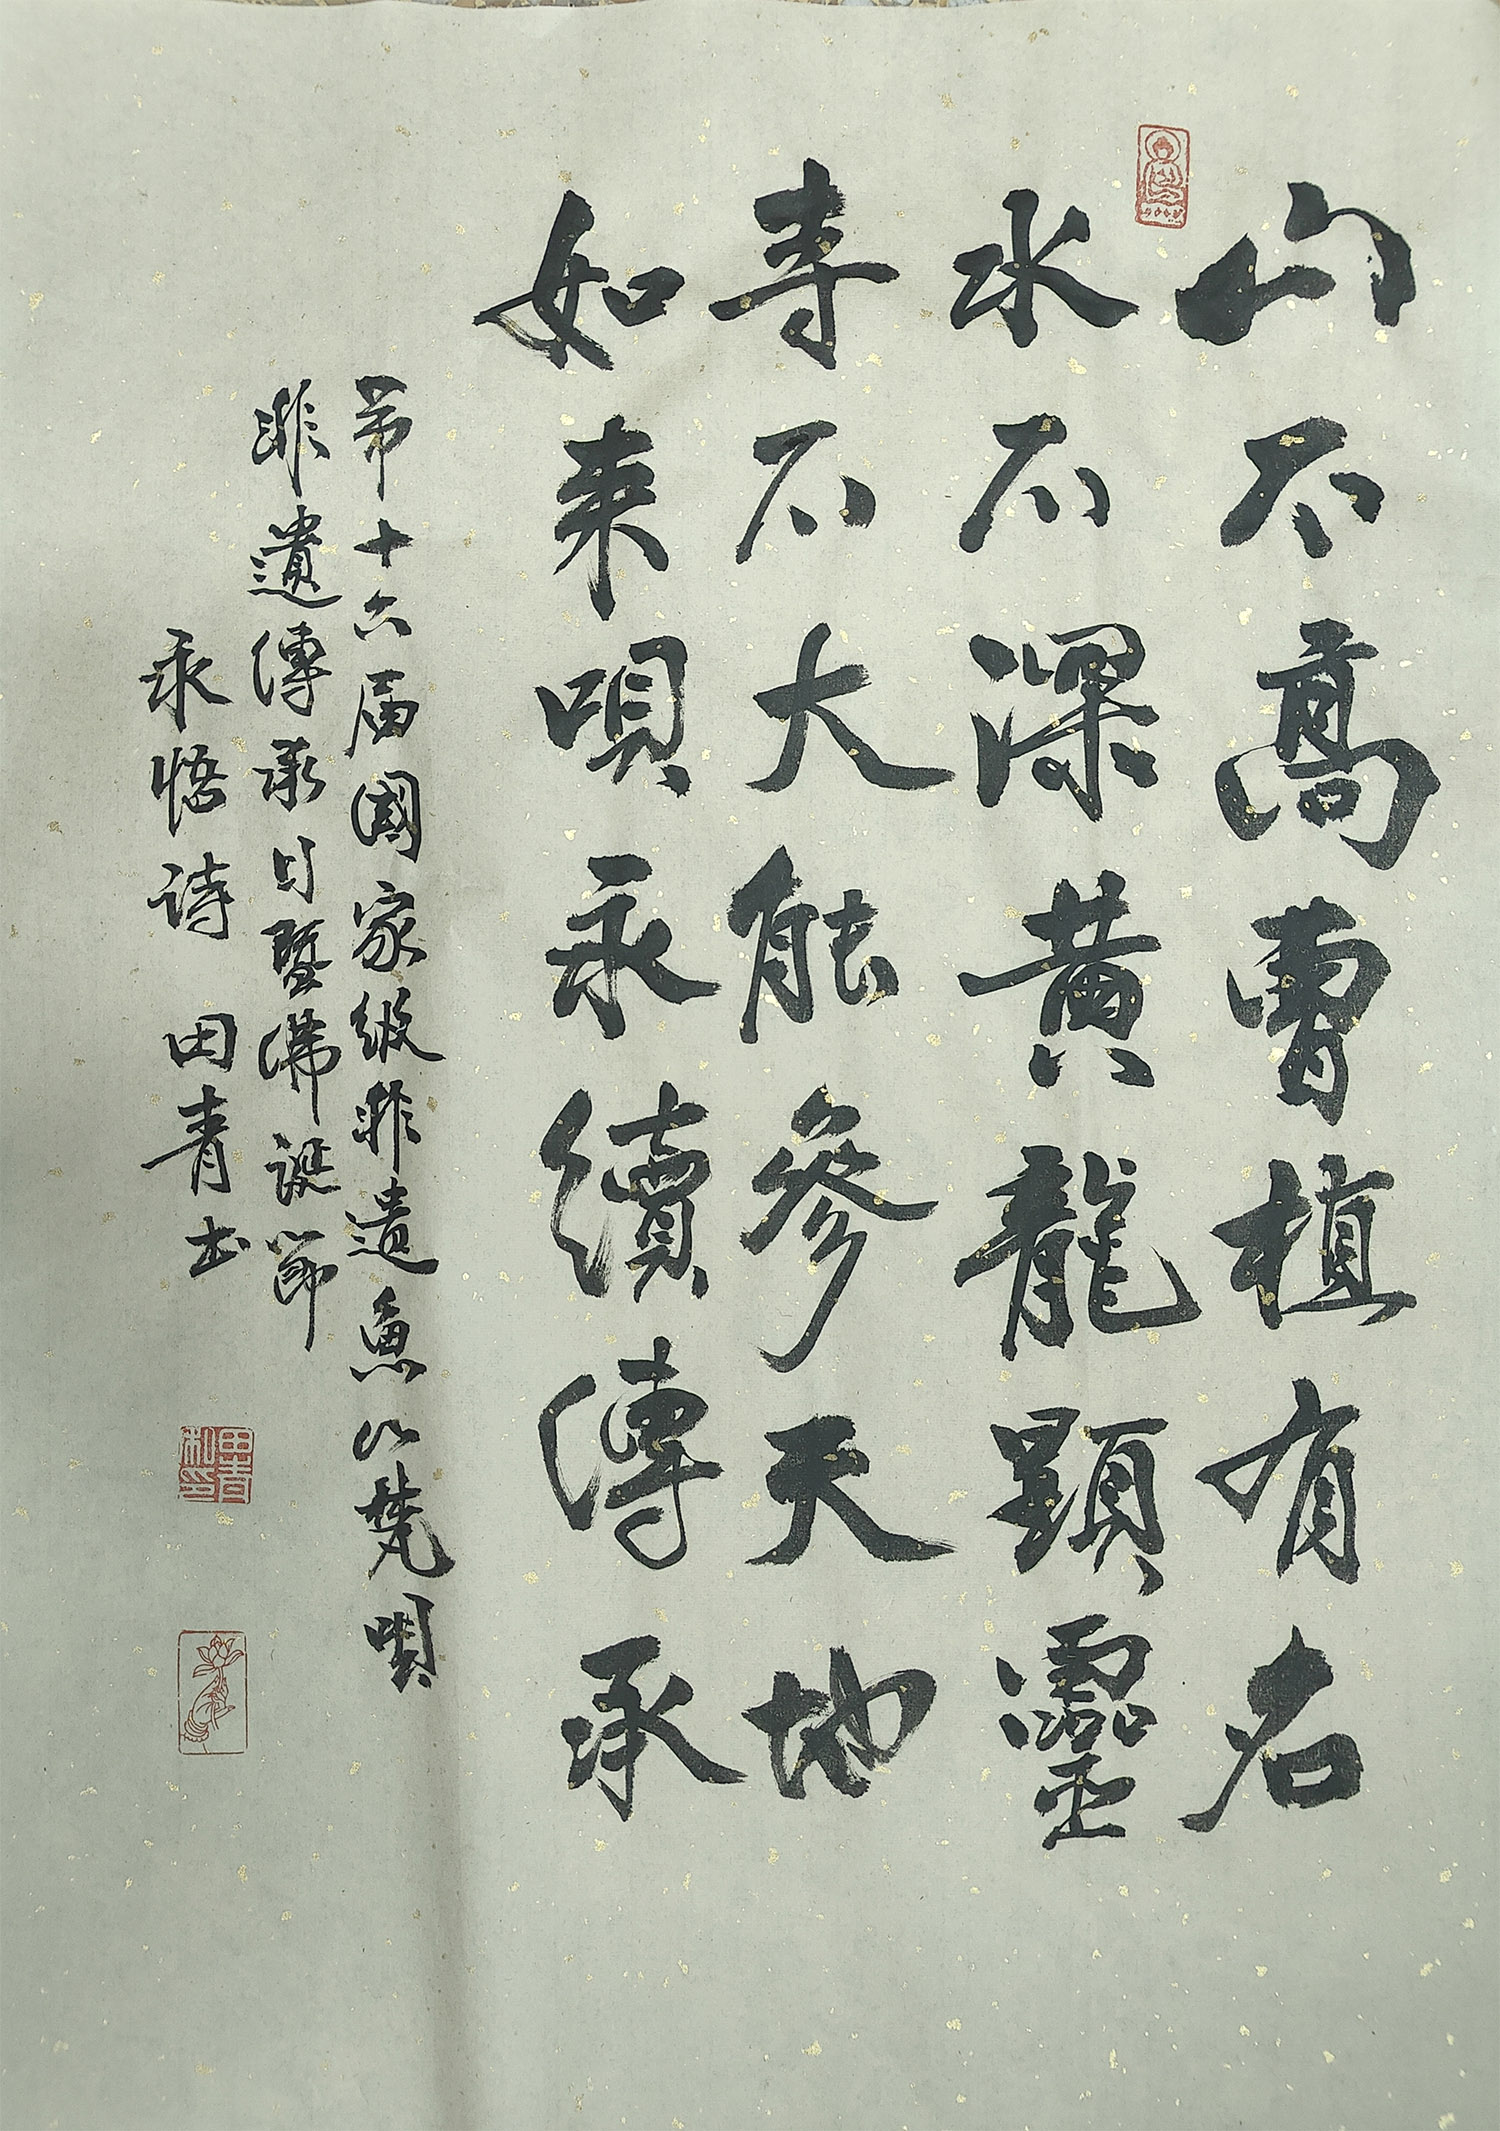 山不高曹植有名
水不深黃龍顯靈
寺不大能參天地
如来唄永續傳承
第十六届國家级非遺魚山梵唄
非遺傳承日暨佛诞節
永悟诗 田青书
田青私印